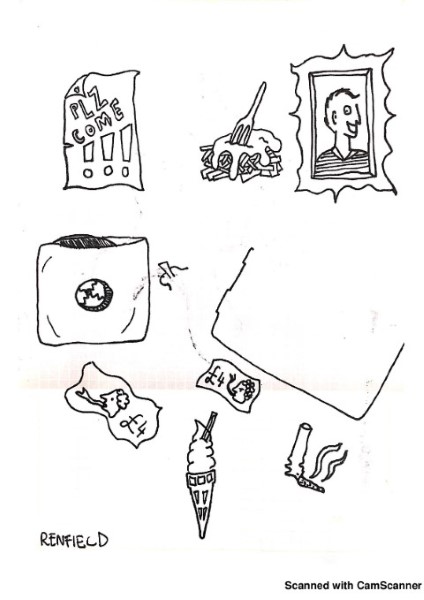 PLZ
COME
!!!
£4
£4
RENFIELD
Scanned with CamScanner